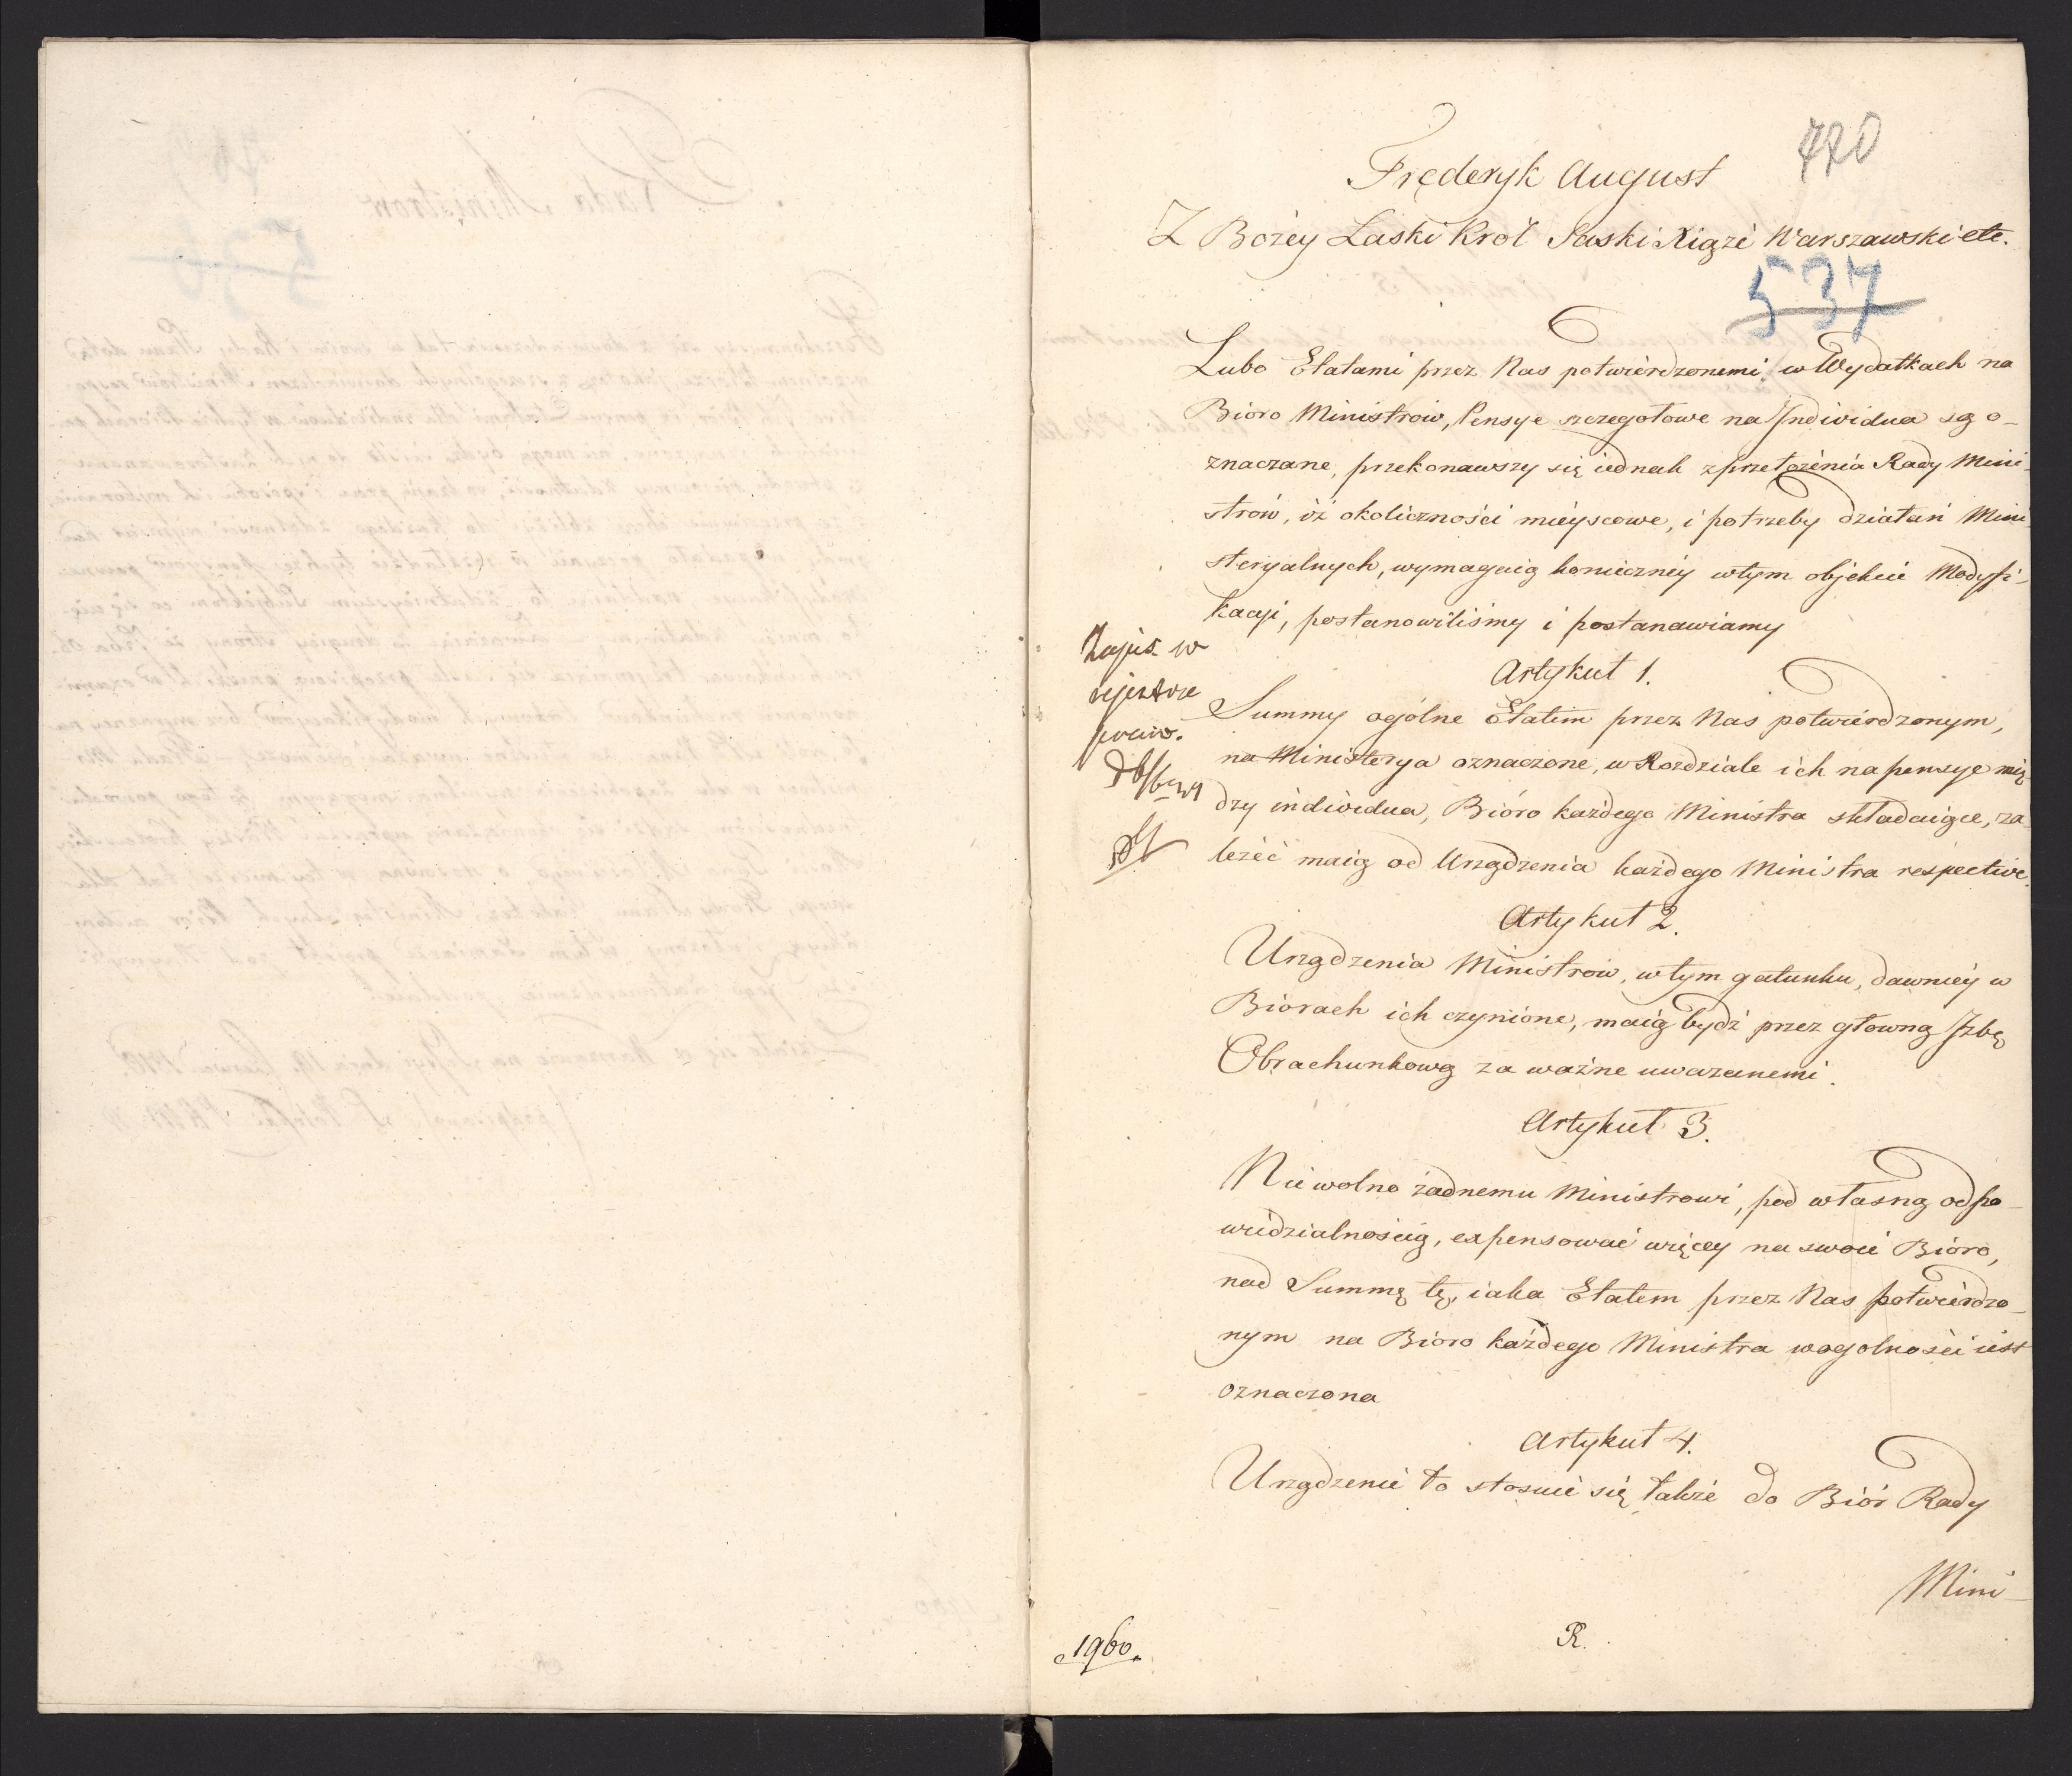 420
Fręderyk August
Z Bożey Łaski Król Saski Xiąże Warszawski etc.
537
Lubo Etatami przez Nas potwierdzonemi w Wydatkach na
Bióro Ministrów, Pensye szczegołowe na Individua są o-
znaczane, przekonawszy się iednak z przełożenia Rady Mini-
strów, iż okoliczności mieyscowe, i potrzeby działań Mini-
steryalnych, wymagaią konieczney w tym objekcie Modyfi-
kacyi, postanowiliśmy i postanawiamy
Artykuł 1.
Summy ogólne Etatem przez Nas potwierdzonym,
na Ministerya oznaczone, w Rozdziale ich na pensye mię-
dzy individua, Bióro każdego Ministra składaiące, za-
leżéć maią od Urządzenia każdego Ministra respective.
Zapis. w
rejestrze
Artykuł 2.
Urządzenia Ministrów, w tym gatunku, dawniey w
Biórach ich czynione, maią bydź przez głowną Izbę
Obrachunkową za ważne uważanemi.
Artykuł 3.
Nie wolno żadnemu Ministrowi, pod własną odpo-
wiedzialnością, expensować więcey na swoie Bióro,
nad Summę tę, iaka Etatem przez Nas potwierdzo-
nym na Bióro każdego Ministra w ogolności iest
oznaczona
Artykuł 4.
Urządzenie to stosuie się także do Biór Rady
Mini-
R.
1960.